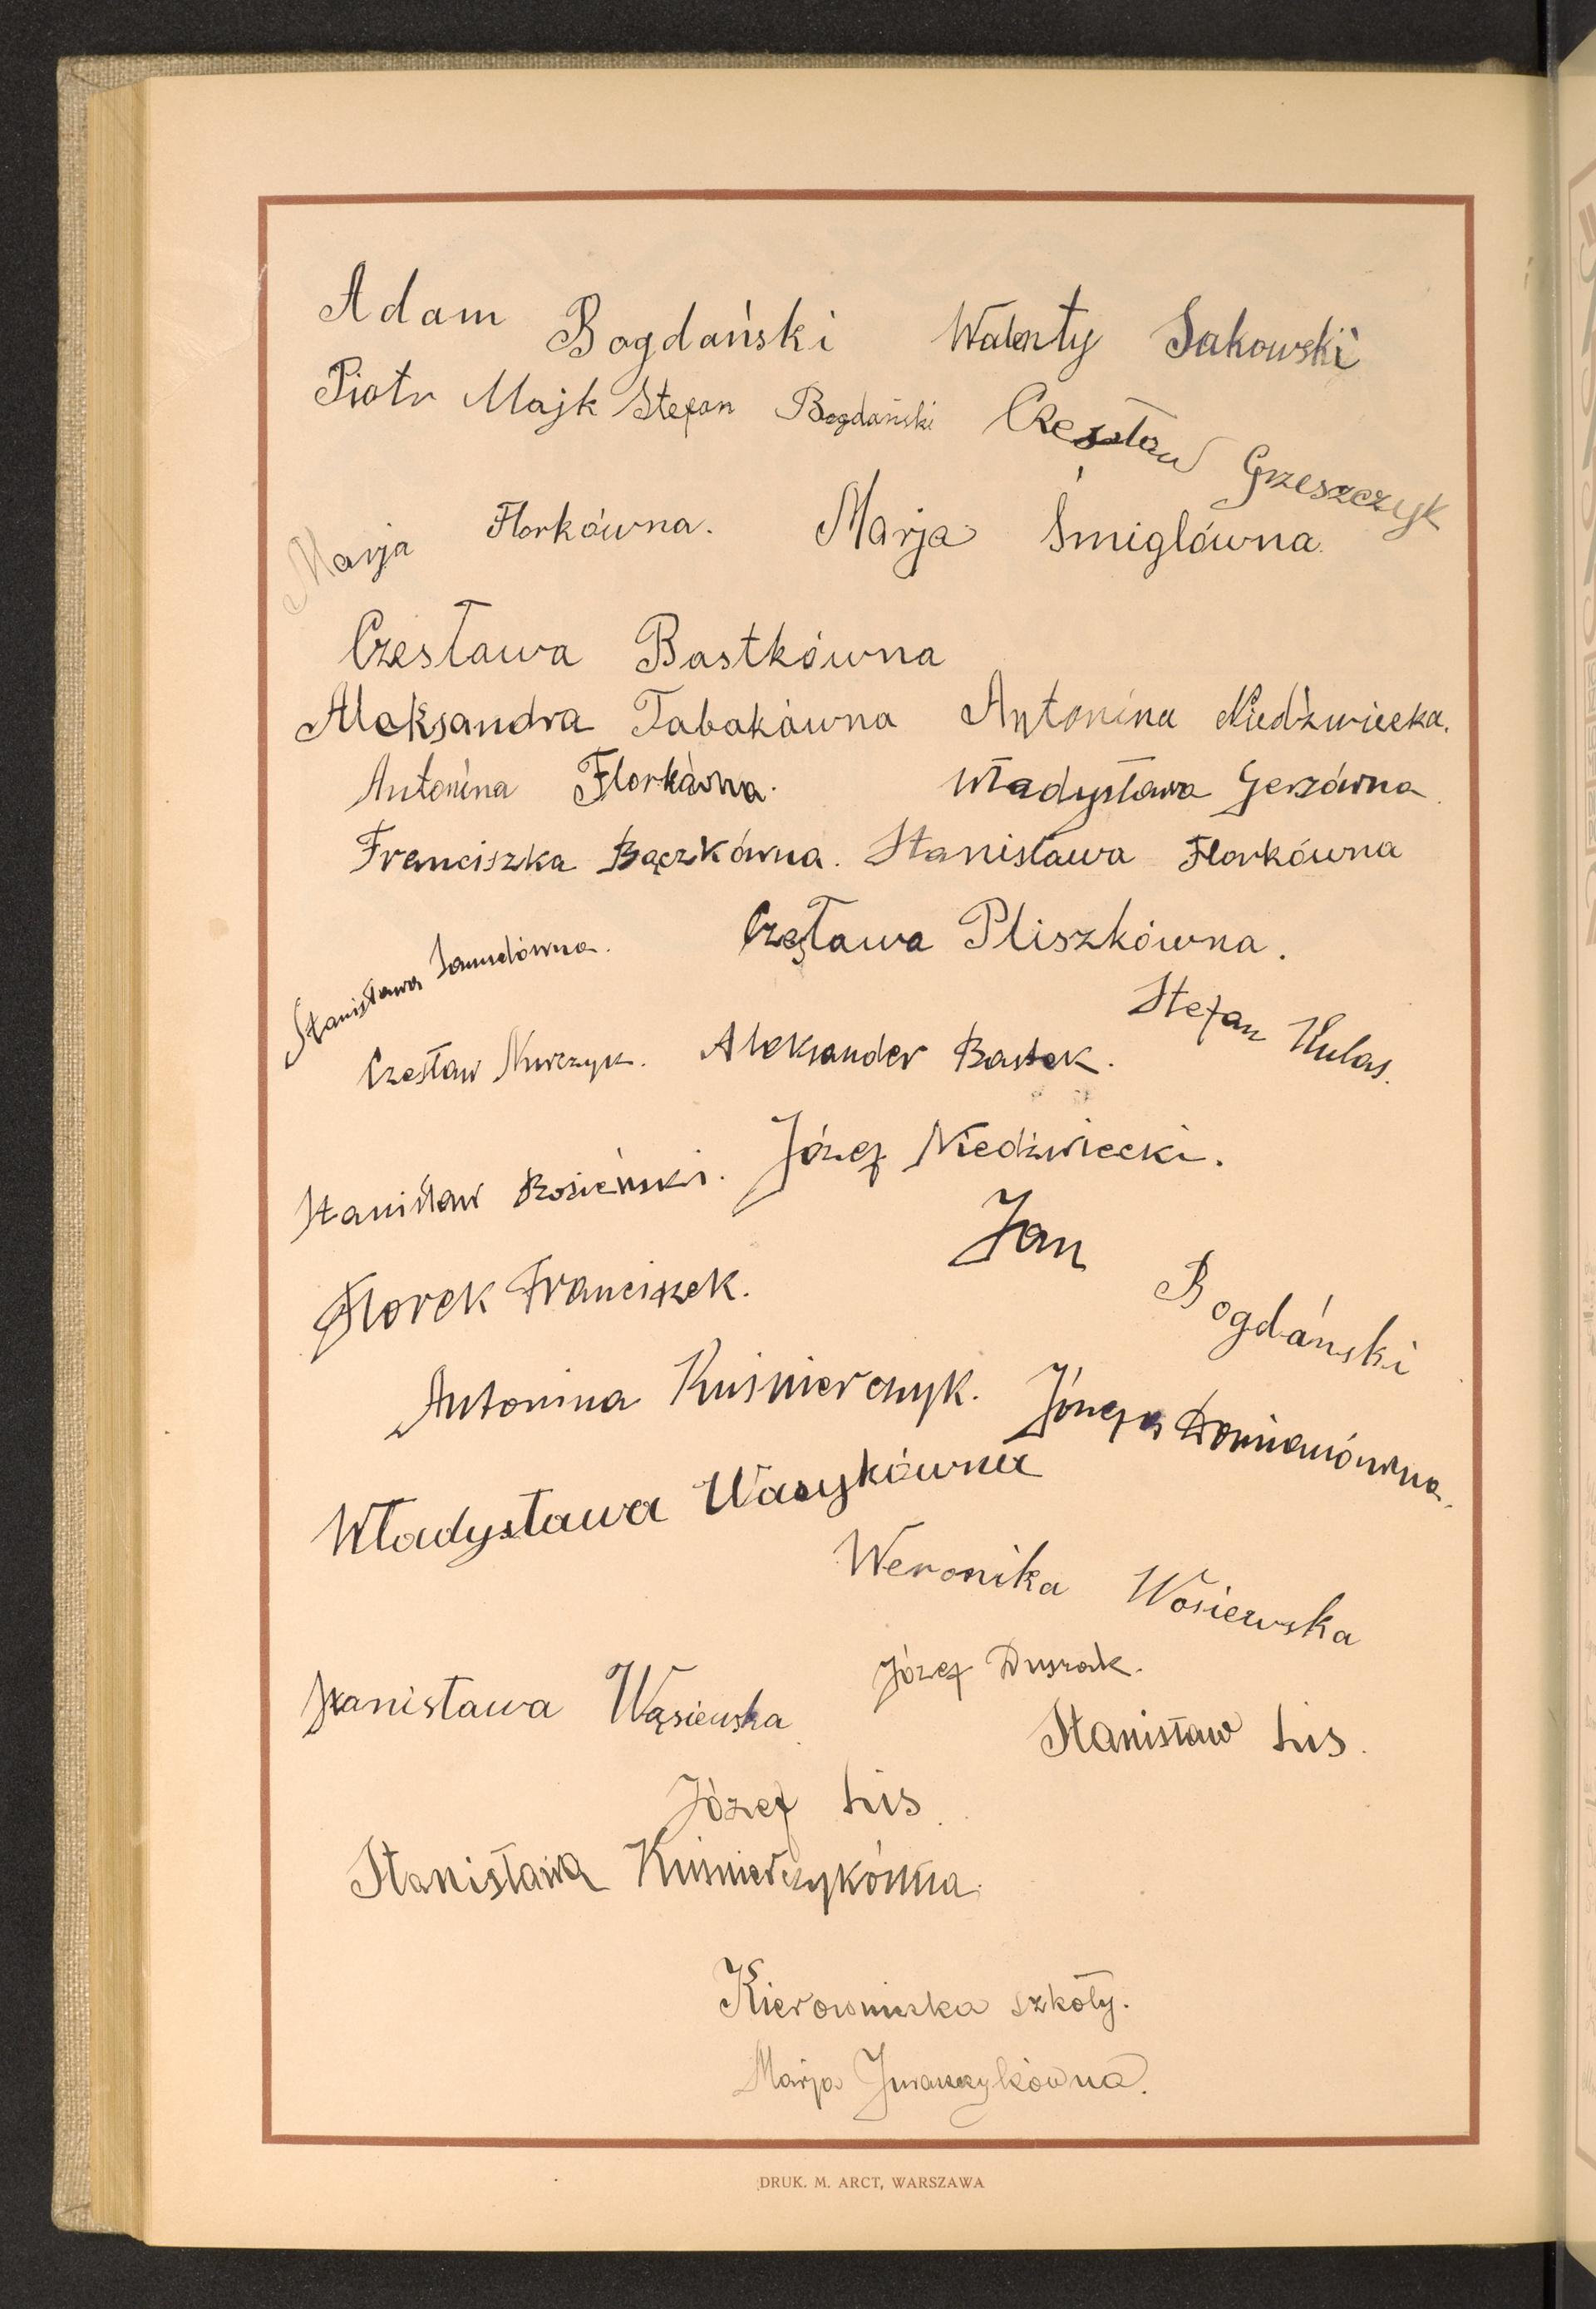 Adam Bogdański Walenty Sakowski
Piotr Majk Stefan Bogdański Czesław Grzeszczyk
Marja Florkówna. Marja Śmiglówna.
Czesława Bastkówna
Aleksandra Tabakówna Antonina Niedźwiecka.
Antonina Florkówna. Władysława Gerzówna
Franciszka Bączkówna. Stanisława Florkówna
Stanisława Czesława Pliszkówna.
Stefan Hulas.
Czesław Nurczyk. Aleksander Bastek.
Stanisław Rosieński. Józef Niedźwiecki.
Jan Bogdański
Florek Franciszek.
Antonina Kuśnierczyk. Józefa Domianówna.
Władysława Wasykówna
Weronika Wosiewska
Józef Duszak.
Stanisława Wąsiewska
Stanisław Lis.
Józef Lis.
Stanisława Kuśnierczykówna.
Kierowniczka szkoły.
Marja Jurawczykówna.
DRUK. M. ARCT, WARSZAWA